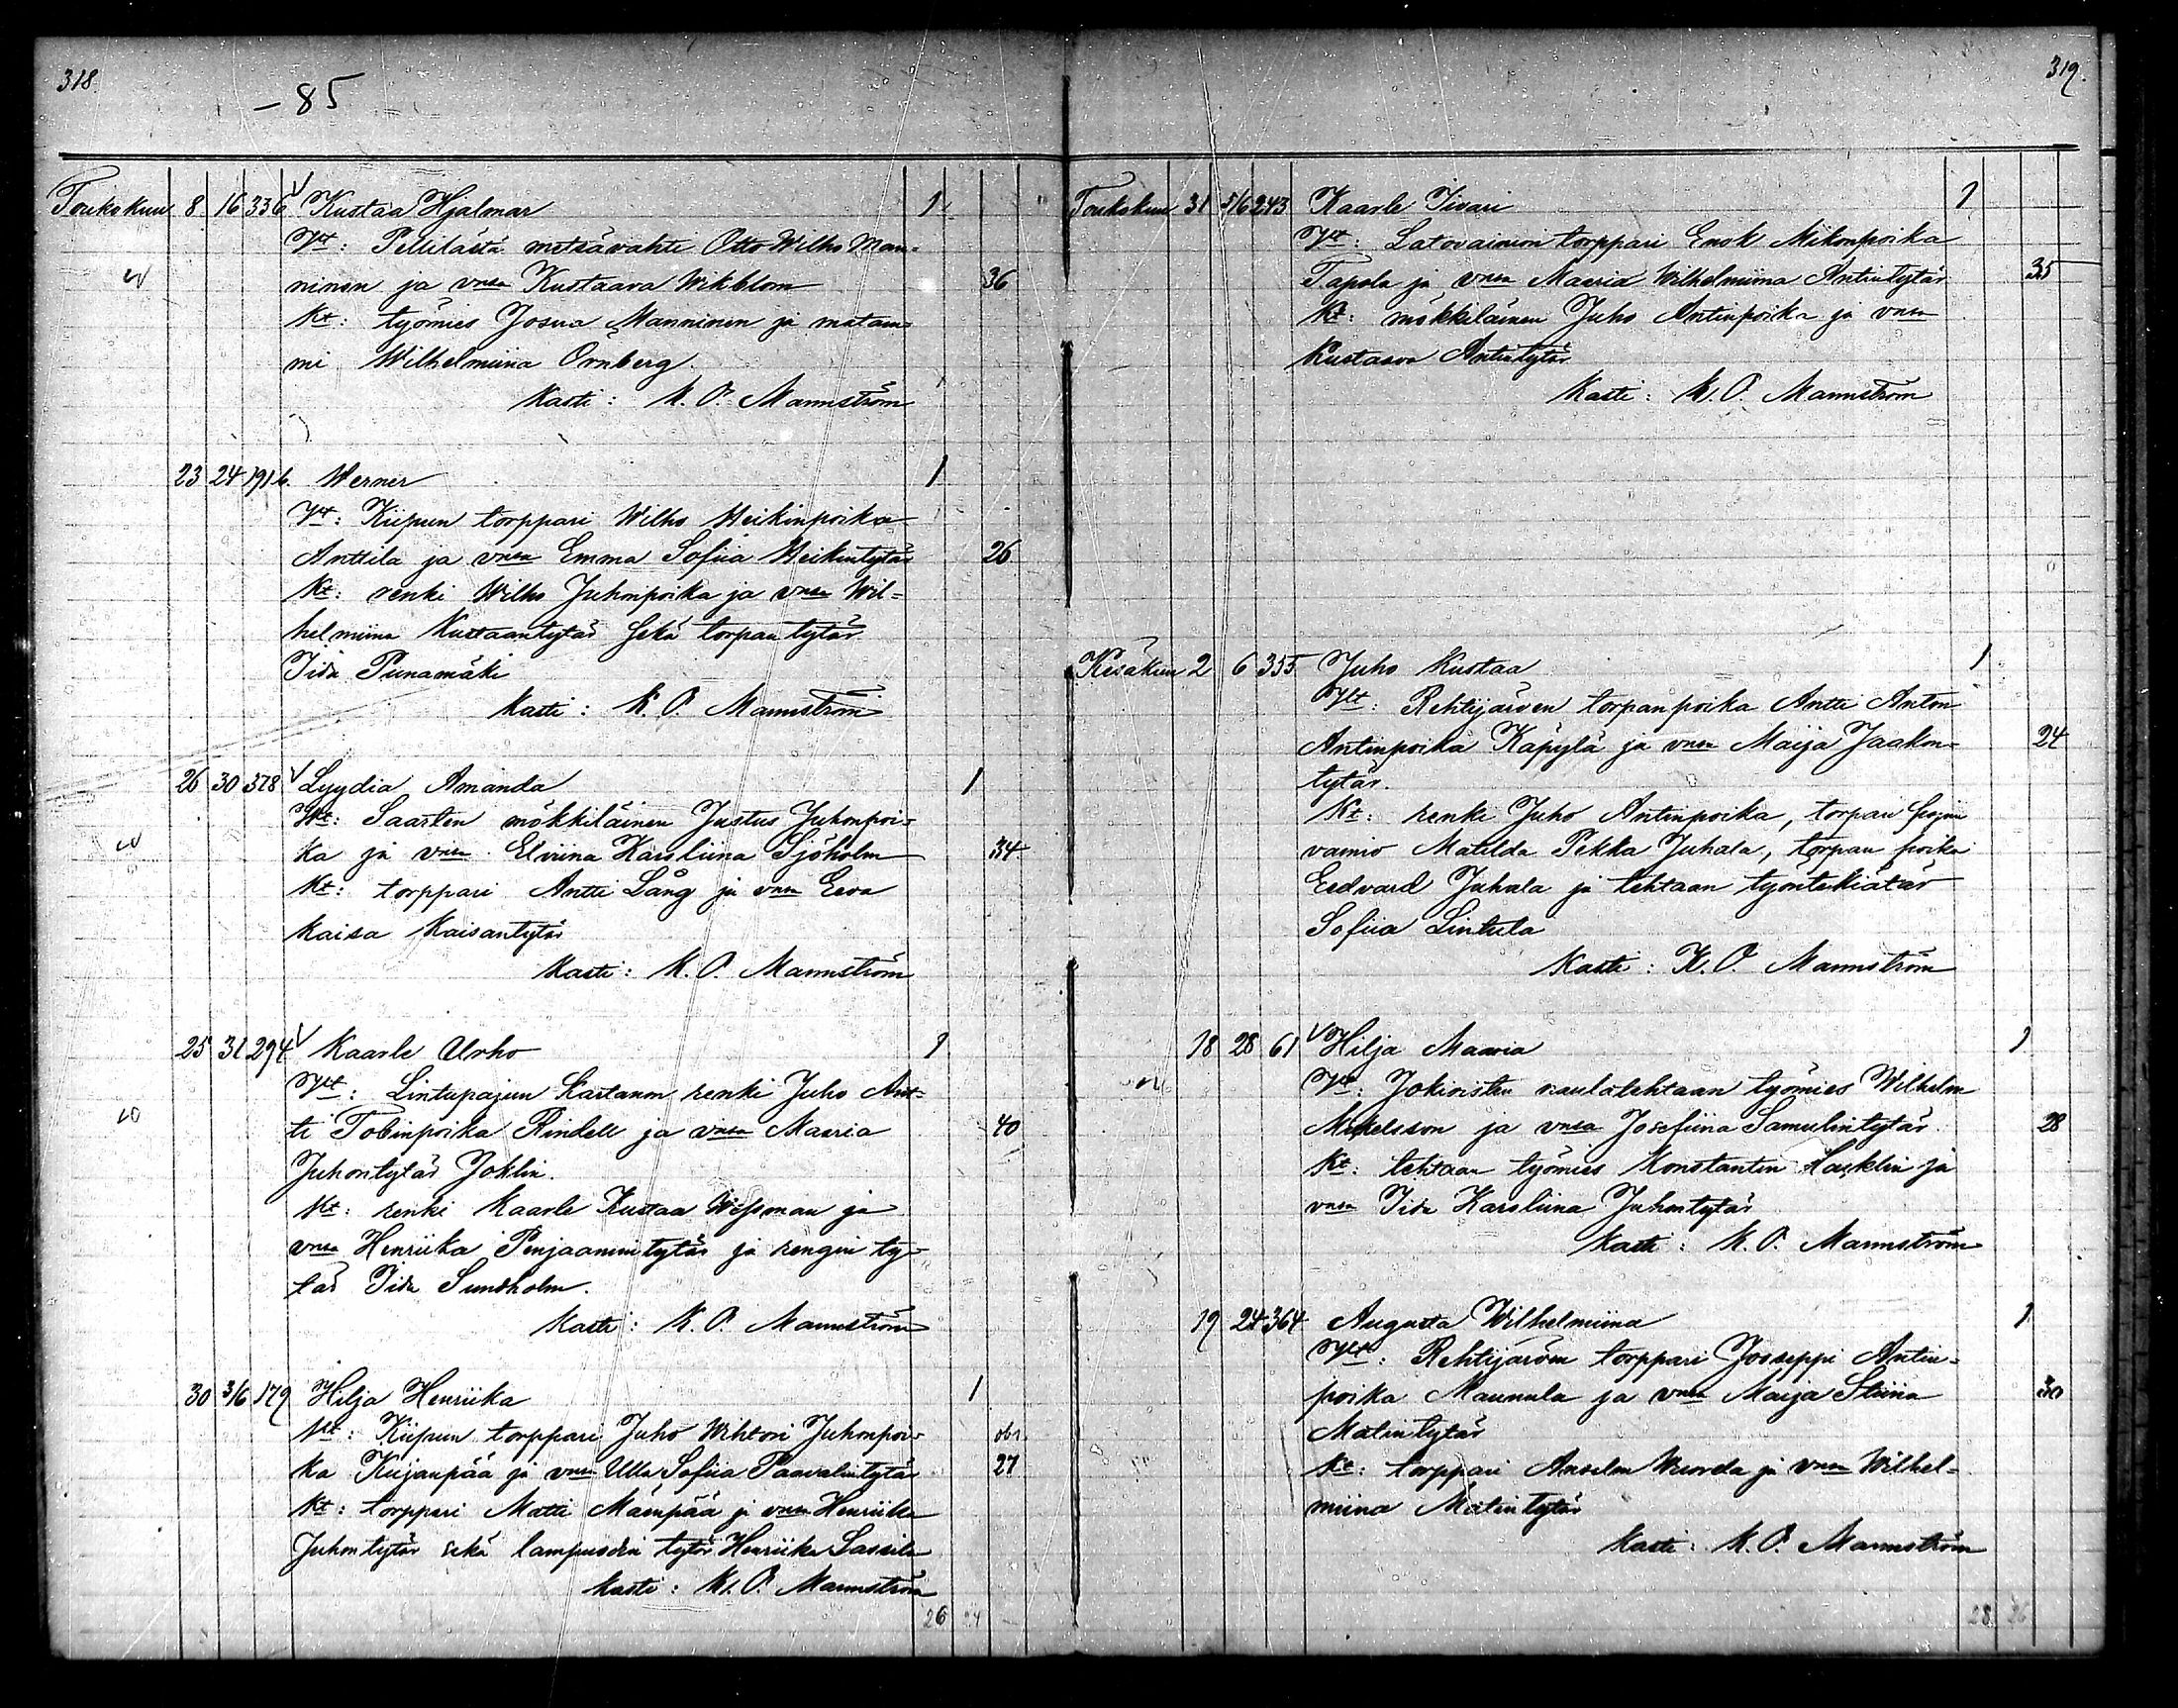 318.
- 85
Toukokuu 8 16 336 Kustaa Hjalmar 1
Vt: Pellilästä metsävahti Otto Wilho Man-
ninen ja vmsa Kustaava Wikblom 36
Kt: työmies Josua Manninen ja matam-
mi Wilhelmiina Örnberg.
Kasti: K. O. Mannström
23 24 191 b. Werner 1
Vt: Kiipun torppari Wilho Heikinpoika
Anttila ja vmsa Emma Sofiia Heikintytär 26
Kt: renki Wilho Juhonpoika ja vmsa Wil-
helmiina Kustaantytär sekä torpan tytär
Iida Punamäki
Kasti: K. O. Mannström
26 30 378 Lyydia Amanda 1
Vt: Saarten mökkiläinen Justus Juhonpoi-
ka ja vmsa Elviina Karoliina Sjöholm 34
Kt: torppari Antti Lång ja vmsa Eeva
Kaisa Kaisantytär
Kasti: K. O. Mannström
25 31 294 Kaarle Urho 1
Vt: Lintupajun kartanon renki Juho Ant-
ti Tobinpoika Rindell ja vmsa Maaria 40
Juhontytär Joklin.
Kt: renki Kaarle Kustaa Wessman ja
vmsa Henriika Penjaamintytär ja rengin ty-
tär Iida Sundholm.
Kasti: K. O. Mannström
30 3/6 179 Hilja Henriika 1
Vt: Kiipun torppari Juho Wihtori Juhonpoi-
ka Kujanpää ja vmsa Ulla Sofiia Paavalintytär 27
Kt: torppari Matti Mäenpää ja vmsa Henriika
Juhontytär sekä lampuodin tytär Henriika Lassila
Kasti: K. O. Mannström
26 24
319.
Toukokuu 31 5/6 243 Kaarle Iivari 1
Vt: Latovainion torppari Enok Mikonpoika
Tapola ja vmsa Maaria Wilhelmiina Antintytär 35
Kt: mökkiläinen Juho Antinpoika ja vmsa
Kustaava Antintytär
Kasti: K. O. Mannström
Kesäkuu 2 6 355 Juho Kustaa 1
Vt: Rehtijärven torpanpoika Antti Anton
Antinpoika Käpylä ja vmsa Maija Jaakon- 24
tytär.
Kt: renki Juho Antinpoika, torpan
vaimo Matilda Pekka Juhala, torpan poika
Eedvard Juhala ja tehtaan työntekiätär
Sofiia Lintula
Kasti: K. O. Mannström
18 28 61 Hilja Maaria 1
Vt: Jokioisten naulatehtaan työmies Wilhelm
Mikelsson ja vmsa Josefiina Samulintytär 28
Kt: tehtaan työmies Konstantin Hasklin ja
vmsa Iida Karoliina Juhontytär
Kasti: K. O. Mannström
19 24 364 Augusta Wilhelmiina 1
Vt: Rehtijärven torppari Joseppi Antin-
poika Maunula ja vmsa Maija Stiina 30
Matintytär
Kt: torppari Anselm Wuorela ja vmsa Wilhel-
miina Matintytär
Kasti: K. O. Mannström
28 26